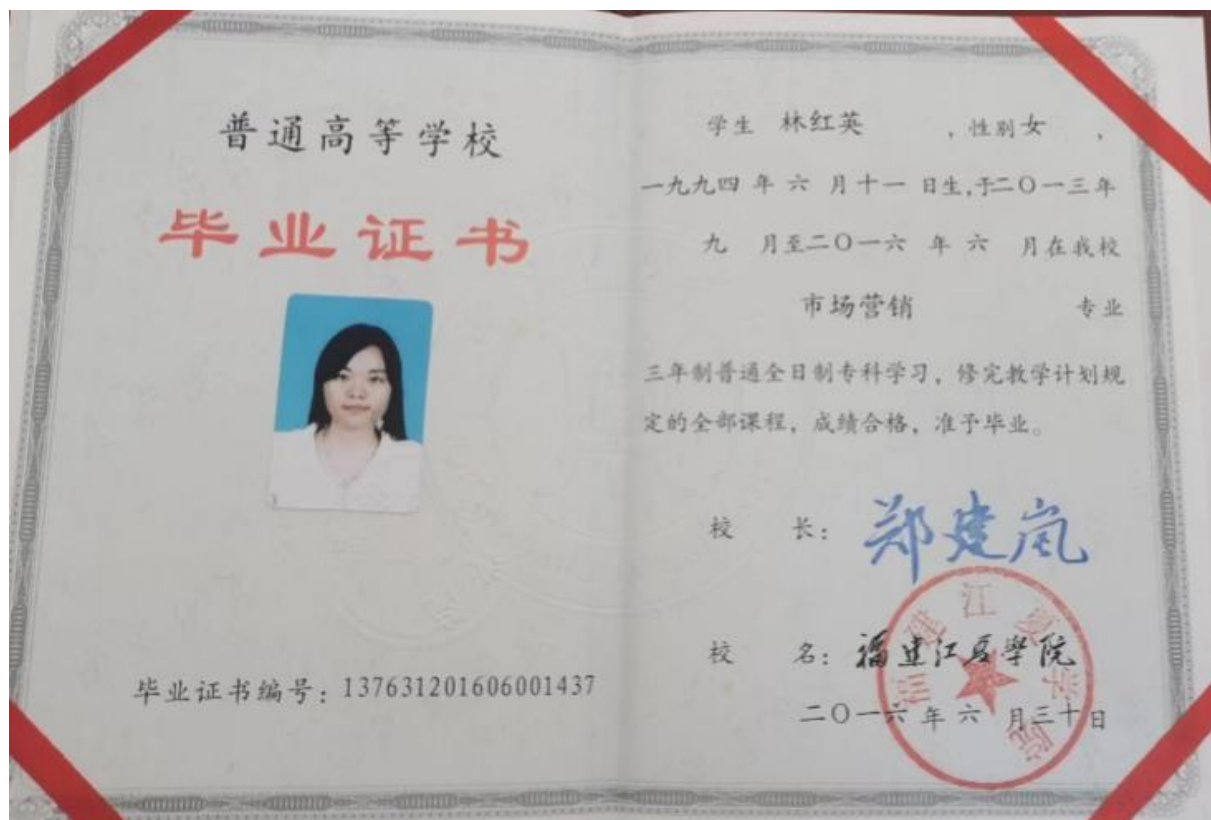 普通高等学校
毕业证书
毕业证书编号：137631201606001437
学生 林红英 ，性别女 ，
一九九四 年 六 月十一 日生，于二〇一三年
九 月至二〇一六 年 六 月在我校
市场营销 专业
三年制普通全日制专科学习，修完教学计划规
定的全部课程，成绩合格，准予毕业。
校 长：郑建岚
校 名：福建江夏學院
二〇一六 年 六 月三十日
福建江夏学院